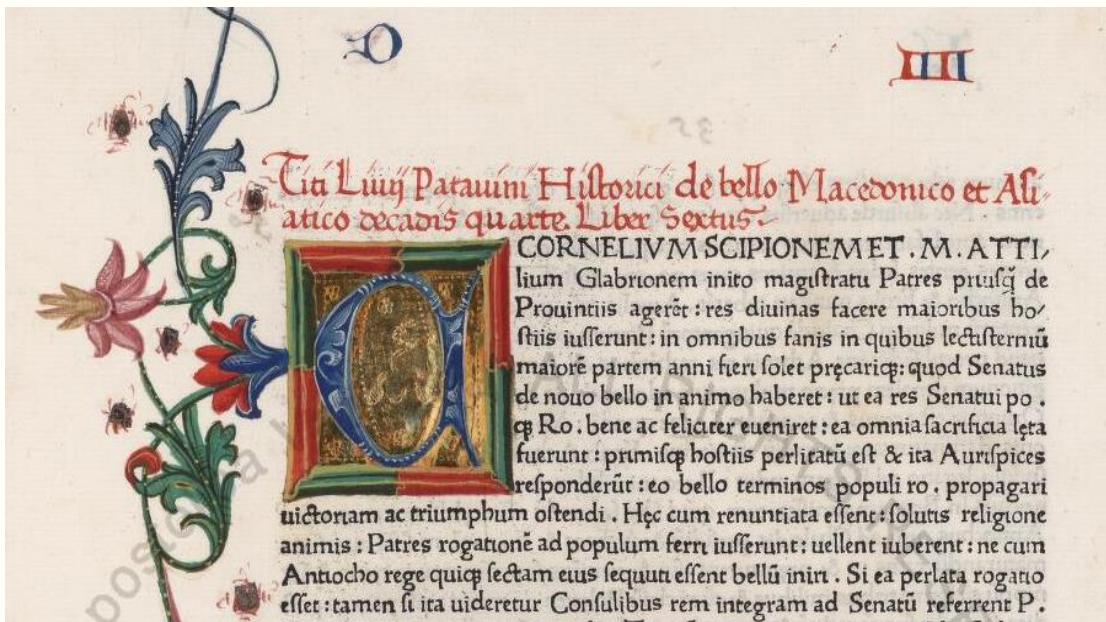 D IIII
Titi Liuij Patauini Historici de bello Macedonico et Asi-
atico decadis quarte. Liber Sextus
CORNELIVM SCIPIONEM ET . M. ATTI/
lium Glabrionem inito magiſtratu Patres priuſq̃ de
Prouintiis agerẽt : res diuinas facere maioribus ho/
ſtiis iuſſerunt : in omnibus fanis in quibus lectiſterniũ
maiorẽ partem anni fieri ſolet pręcariqꝫ: quod Senatus
de nouo bello in animo haberet : ut ea res Senatui po .
qꝫ Ro . bene ac feliciter eueniret : ea omnia ſacrificia lęta
fuerunt : primiſqꝫ hoſtiis perlitatũ eſt & ita Auriſpices
reſponderũt : eo bello terminos populi ro . propagari
uictoriam ac triumphum oſtendi . Hęc cum renuntiata eſſent : ſolutis religione
animis : Patres rogationẽ ad populum ferri iuſſerunt : uellent iuberent : ne cum
Antiocho rege quiqꝫ ſectam eius ſequuti eſſent bellũ iniri . Si ea perlata rogatio
eſſet : tamen ſi ita uideretur Conſulibus rem integram ad Senatũ referrent P .